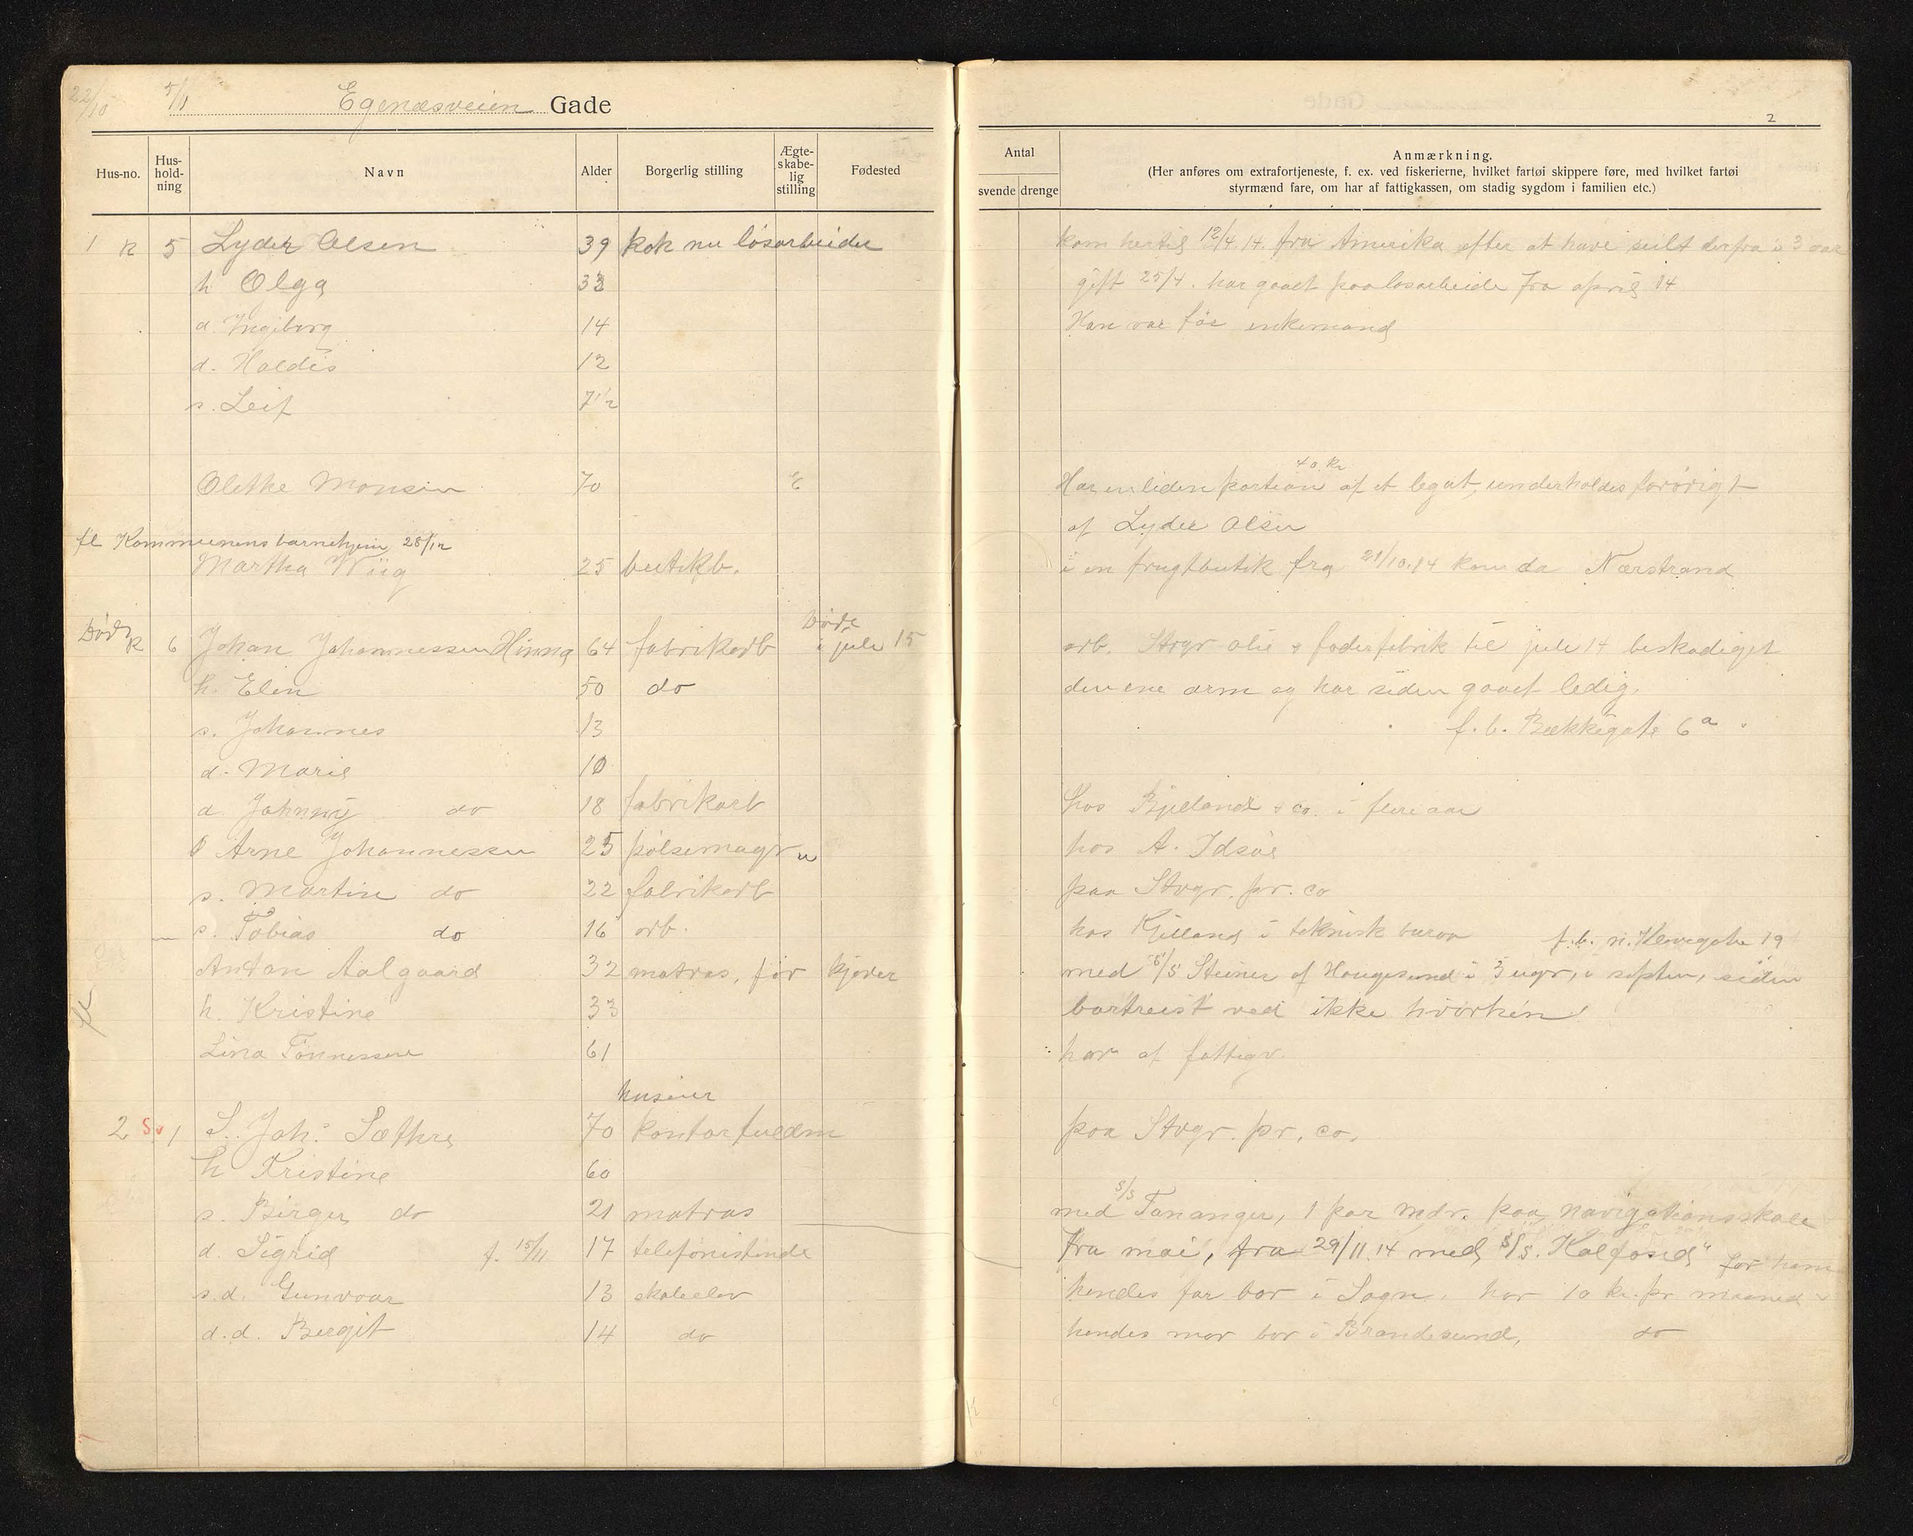 22/10 5/11 Egenæsveien Gade
Hus-no. Hus-hold-ning Navn Alder Borgerlig stilling Ægte-skabe-lig stilling Fødested
1 k 5 Lyder Olsen 39 kok nu løsarbeider
h Olga 33
d. Ingiborg 14
d. Haldis 12
s. Leif 7 1/2
Olethe Monsen 70 E
fl Kommunens barnehjem 28/12
Martha Wiig 25 butikb.
Død k 6 Johan Johannessen Hinna 64 fabrikarb Døde i jule 15
h. Elen 50 do
s. Johannes 13
d. Marie 10
d. Johnny do 18 fabrikarb
s Arne Johannessen 25 pølsemagr u
s. Martin do 22 fabrikarb
s. Tobias do 16 arb.
Anton Aalgaard 32 matros, før kjører
fl h. Kristine 33
Lina Tønnessen 61
huseier
2 S 1 S. Joh. Sæthre 70 kontorfuldm
h Kristine 60
s. Birger do 21 matros
d. Sigrid f. 15/11 17 telefonistinde
s.d. Gunvoar 13 skoleelev
d.d. Bergit 14 do
2
Antal
svende drenge
Anmærkning.
(Her anføres om extrafortjeneste, f. ex. ved fiskerierne, hvilket fartøi skippere føre, med hvilket fartøi
styrmænd fare, om har af fattigkassen, om stadig sygdom i familien etc.)
kom hertil 12/4.14. fra Amerika efter at have seilt derfra i 3 aar
gift 25/4. har gaaet paa løsarbeide fra april 14
Han var før enkemand
40 kr
Har en liden portion af et legat, underholdes forøvrigt
af Lyder Olsen
i en frugtbutik fra 21/10.14 kom da Nærstrand
arb. Stvgr olie & foderfabrik til jule 14 beskadiget
den ene arm og har siden gaaet ledig.
f.b. Bækkegate 6a
hos Bjelland & co. i flere aar
hos A. Idsøe
paa Stvgr. pr. co
hos Kjelland i teknisk buroa f.b. n. Klevegate 19
med S/S Steiner af Haugesund i 3 ugr, i septbr, siden
bortreist ved ikke hvorhen
har af fattigv.
paa Stvgr. pr. co.
med S/S Tananger, 1 par mdr. paa navigationsskole
fra mai, fra 29/11.14 med S/S. "Kalfond" for ham
hendes far bor i Sogn. har 10 kr. pr maaned
hendes mor bor i Brandesund, do